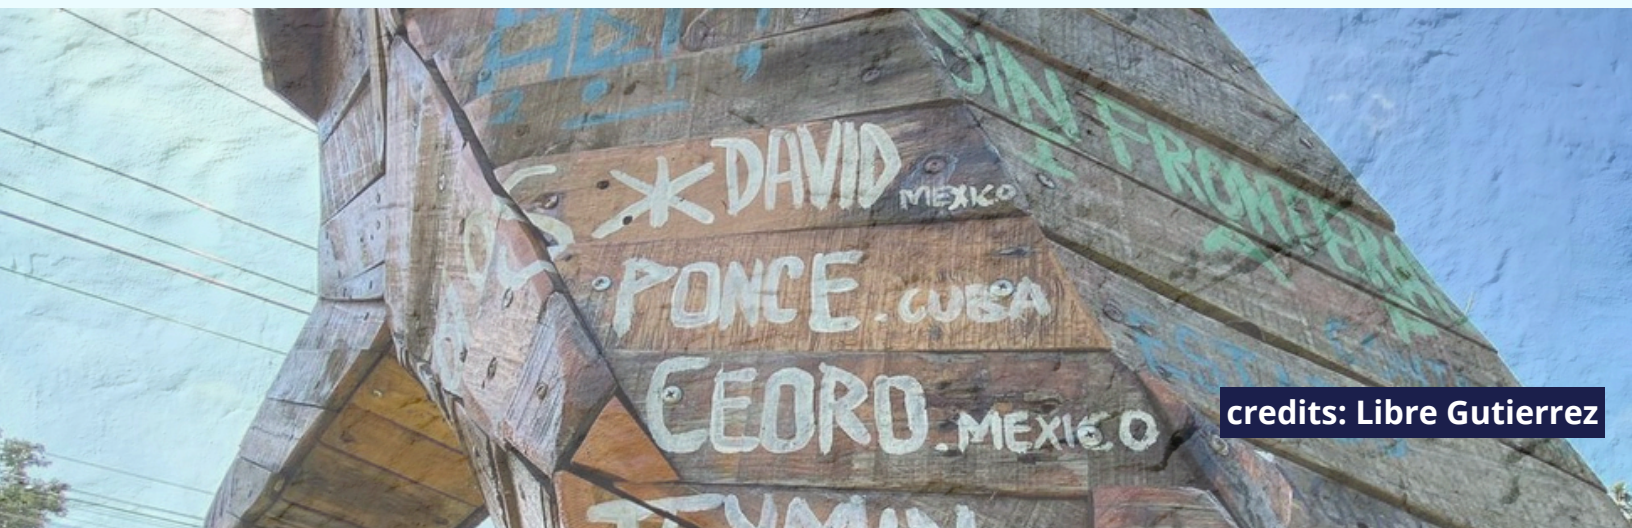 ABI
* DAVID MEXICO
PONCE . CUBA
CEORO . MEXICO
SIN FRONTERA
credits: Libre Gutierrez